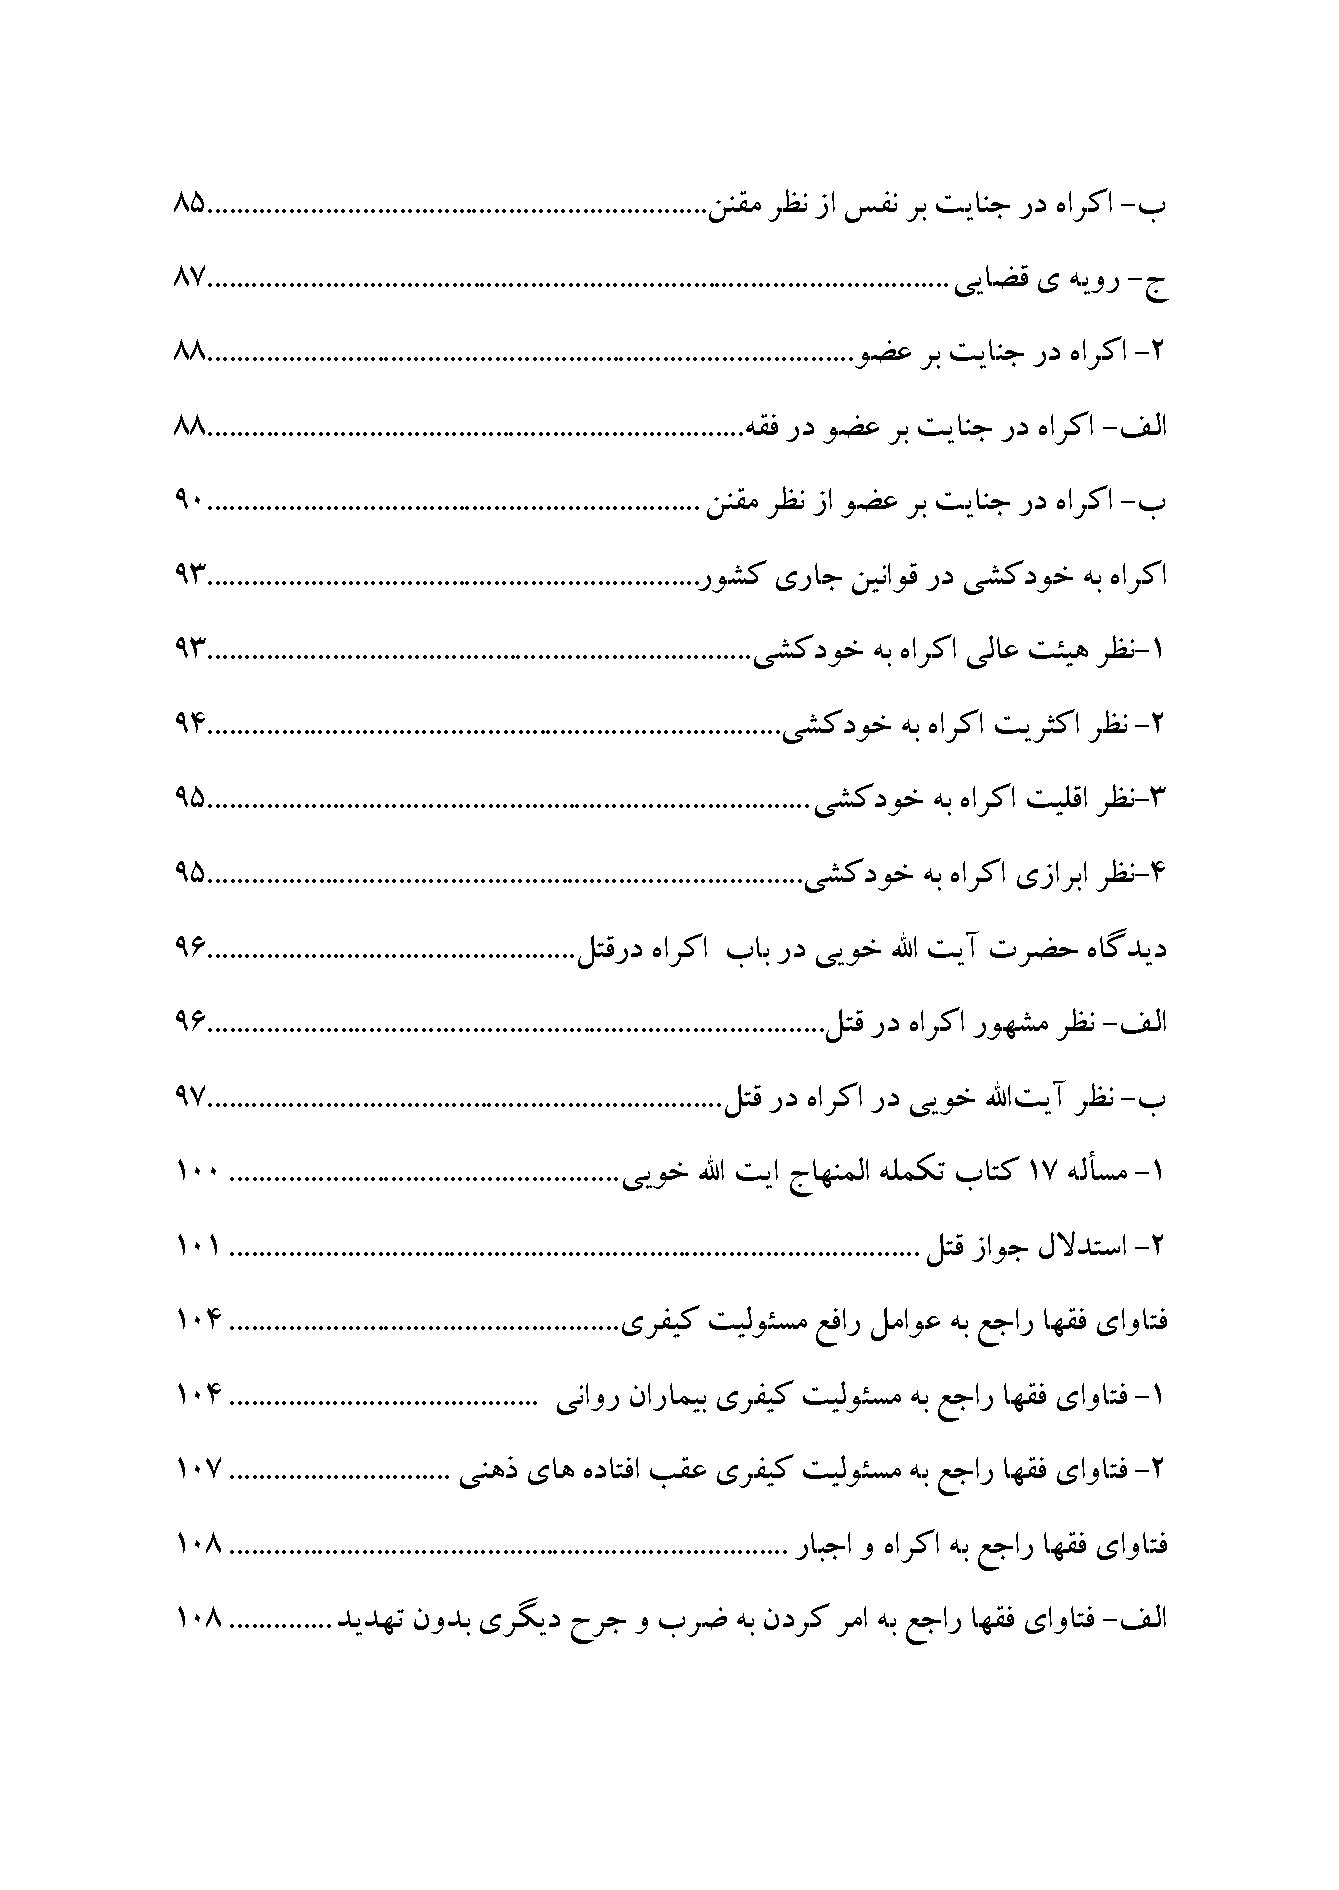 ب- اکراه در جنایت بر نفس از نظر مقنن....................................................................۸۵
ج- رویه ی قضایی ....................................................................................................۸۷
۲- اکراه در جنایت بر عضو........................................................................................۸۸
الف- اکراه در جنایت بر عضو در فقه.........................................................................۸۸
ب- اکراه در جنایت بر عضو از نظر مقنن ...................................................................۹۰
اکراه به خودکشی در قوانین جاری کشور...................................................................۹۳
۱-نظر هیئت عالی اکراه به خودکشی..........................................................................۹۳
۲- نظر اکثریت اکراه به خودکشی..............................................................................۹۴
۳-نظر اقلیت اکراه به خودکشی ..................................................................................۹۵
۴-نظر ابرازی اکراه به خودکشی.................................................................................۹۵
دیدگاه حضرت آیت الله خویی در باب اکراه درقتل..................................................۹۶
الف- نظر مشهور اکراه در قتل....................................................................................۹۶
ب- نظر آیت‌الله خویی در اکراه در قتل......................................................................۹۷
۱- مسأله ۱۷ کتاب تکمله المنهاج ایت الله خویی..................................................... ۱۰۰
۲- استدلال جواز قتل .............................................................................................. ۱۰۱
فتاوای فقها راجع به عوامل رافع مسئولیت کیفری..................................................... ۱۰۴
۱- فتاوای فقها راجع به مسئولیت کیفری بیماران روانی .......................................... ۱۰۴
۲- فتاوای فقها راجع به مسئولیت کیفری عقب افتاده های ذهنی .............................. ۱۰۷
فتاوای فقها راجع به اکراه و اجبار ............................................................................ ۱۰۸
الف- فتاوای فقها راجع به امر کردن به ضرب و جرح دیگری بدون تهدید .............. ۱۰۸